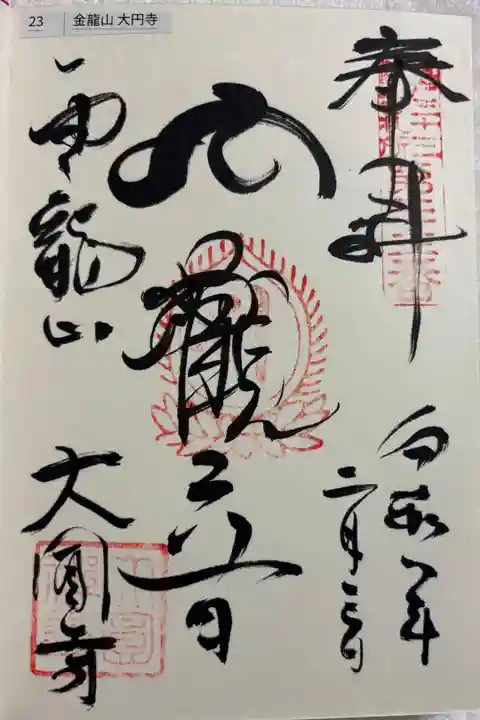 23 金龍山 大円寺
奉拝
令和八年
二月三日
觀世音
金龍山
大圓寺